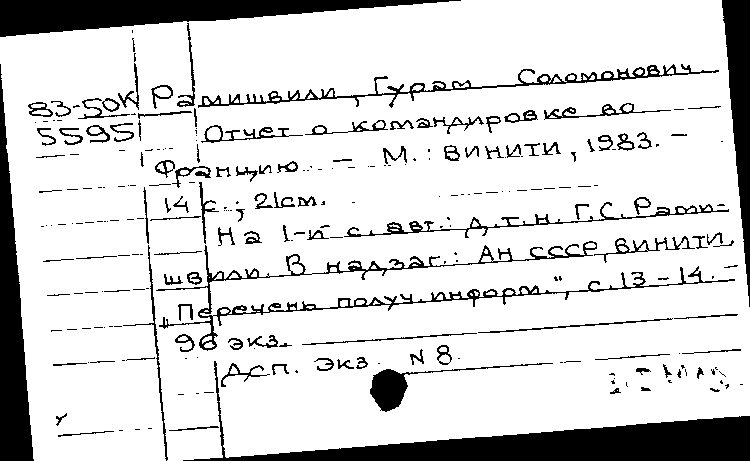 83-50К Рамишвили, Гурам Соломонович
5595 Отчет о командировке во
Францию. - М.: ВИНИТИ, 1983. -
14 с.; 21см.
На 1-й с. авт.: д.т.н. Г.С. Рами-
швили. В надзаг.: АН СССР, ВИНИТИ.
„Перечень получ. информ.", с. 13-14. -
96 экз.
ДСП. экз. N 8.